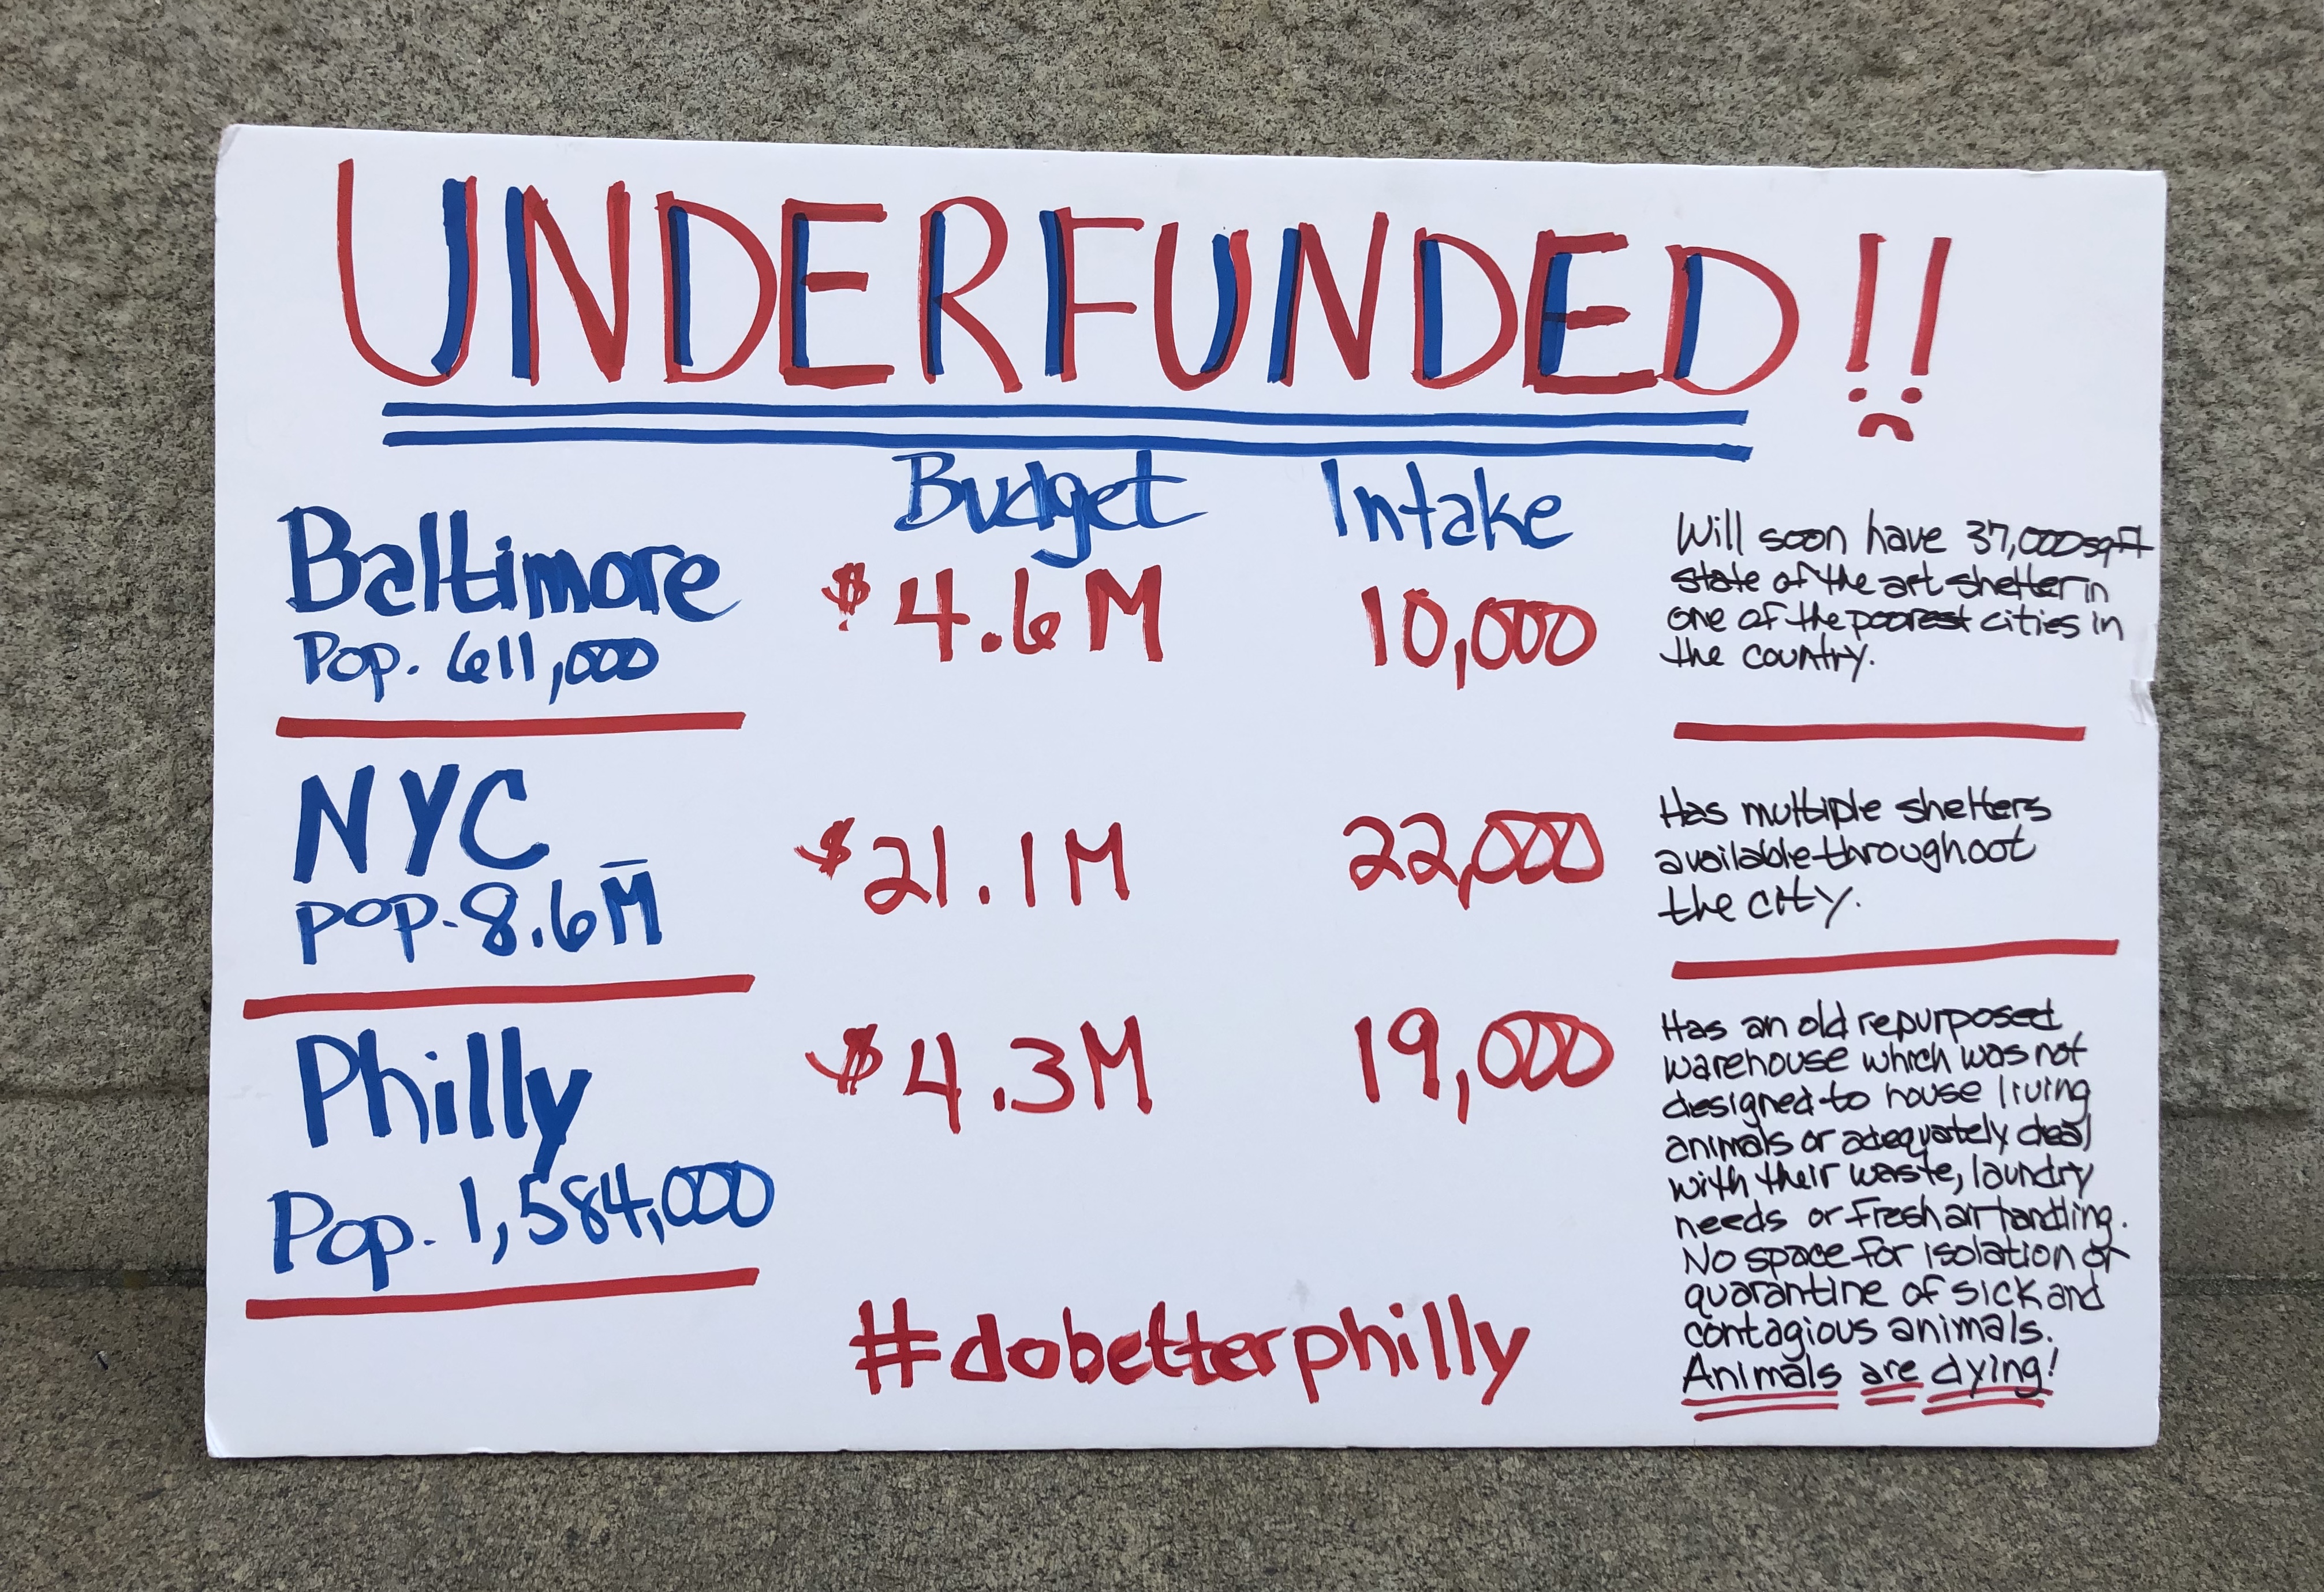 UNDERFUNDED!!
Budget Intake
Baltimore $4.6M 10,000
Pop. 611,000
Will soon have 37,000sqft
state of the art shelter in
one of the poorest cities in
the country.
NYC $21.1M 22,000
pop. 8.6M
Has multiple shelters
available throughout
the city.
Philly $4.3M 19,000
Pop. 1,584,000
Has an old repurposed
warehouse which was not
designed to house living
animals or adequately deal
with their waste, laundry
needs or fresh air handling.
No space for isolation or
quarantine of sick and
contagious animals.
Animals are dying!
#dobetterphilly